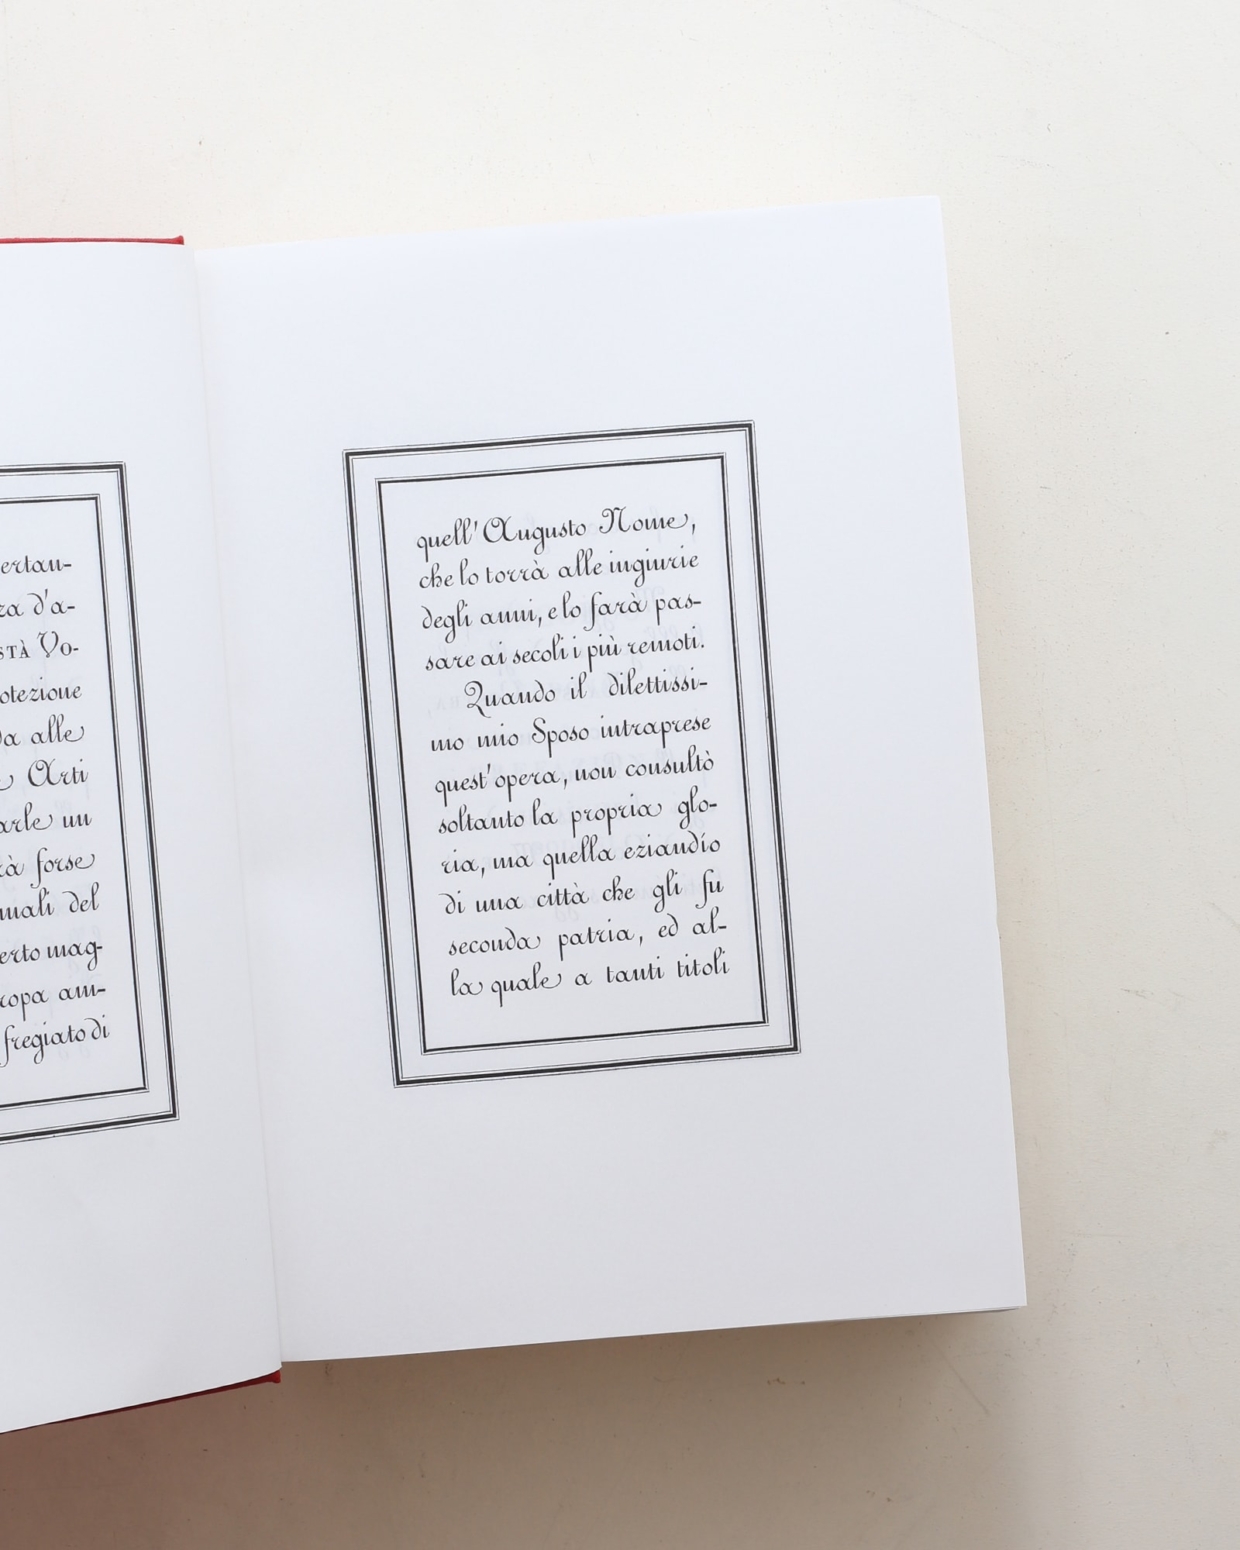 ertan-
za d'a-
STÀ Vo-
otezione
da alle
Arti
arle un
rà forse
nnali del
erto mag-
ropa am-
fregiato di
quell' Augusto Nome,
che lo torrà alle ingiurie
degli anni, e lo farà pas-
sare ai secoli i più remoti.
Quando il dilettissi-
mo mio Sposo intraprese
quest'opera, non consultò
soltanto la propria glo-
ria, ma quella eziandío
di una città che gli fu
seconda patria, ed al-
la quale a tanti titoli